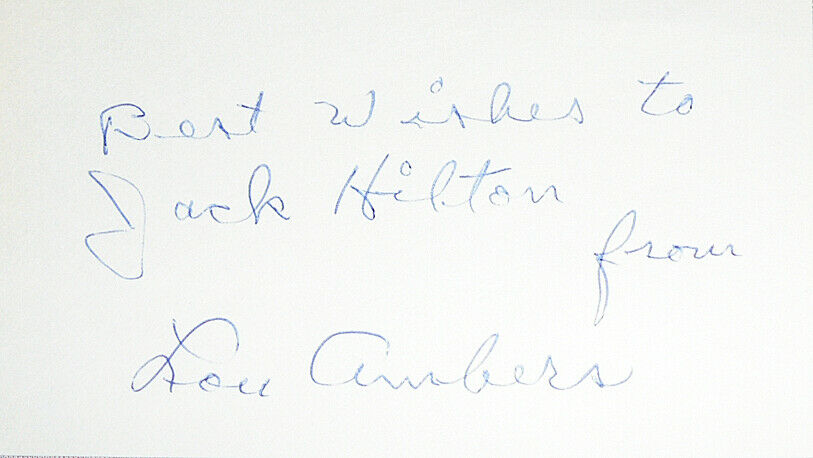 Best Wishes to
Jack Hilton
from
Lou Ambers